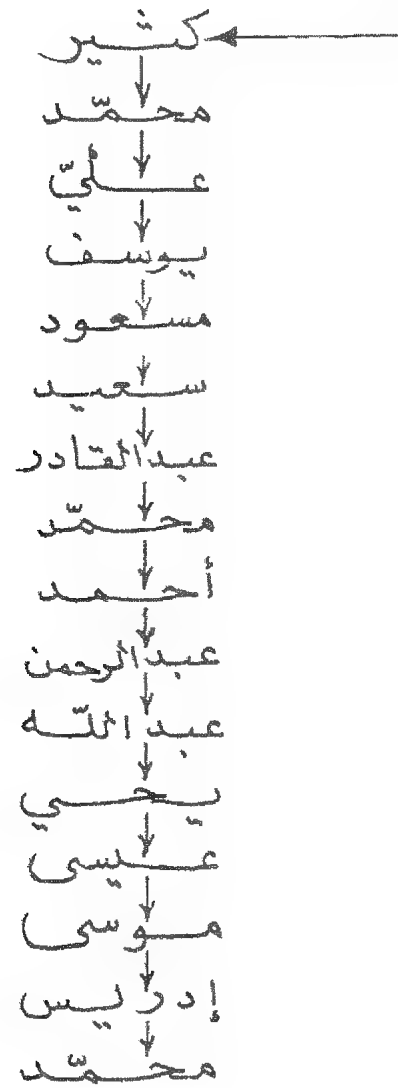 كثير
محمّد
عليّ
يوسف
مسعود
سعيد
عبد القادر
محمّد
أحمد
عبد الرحمن
عبد اللّه
يحي
عيسى
موسى
إدريس
محمّد